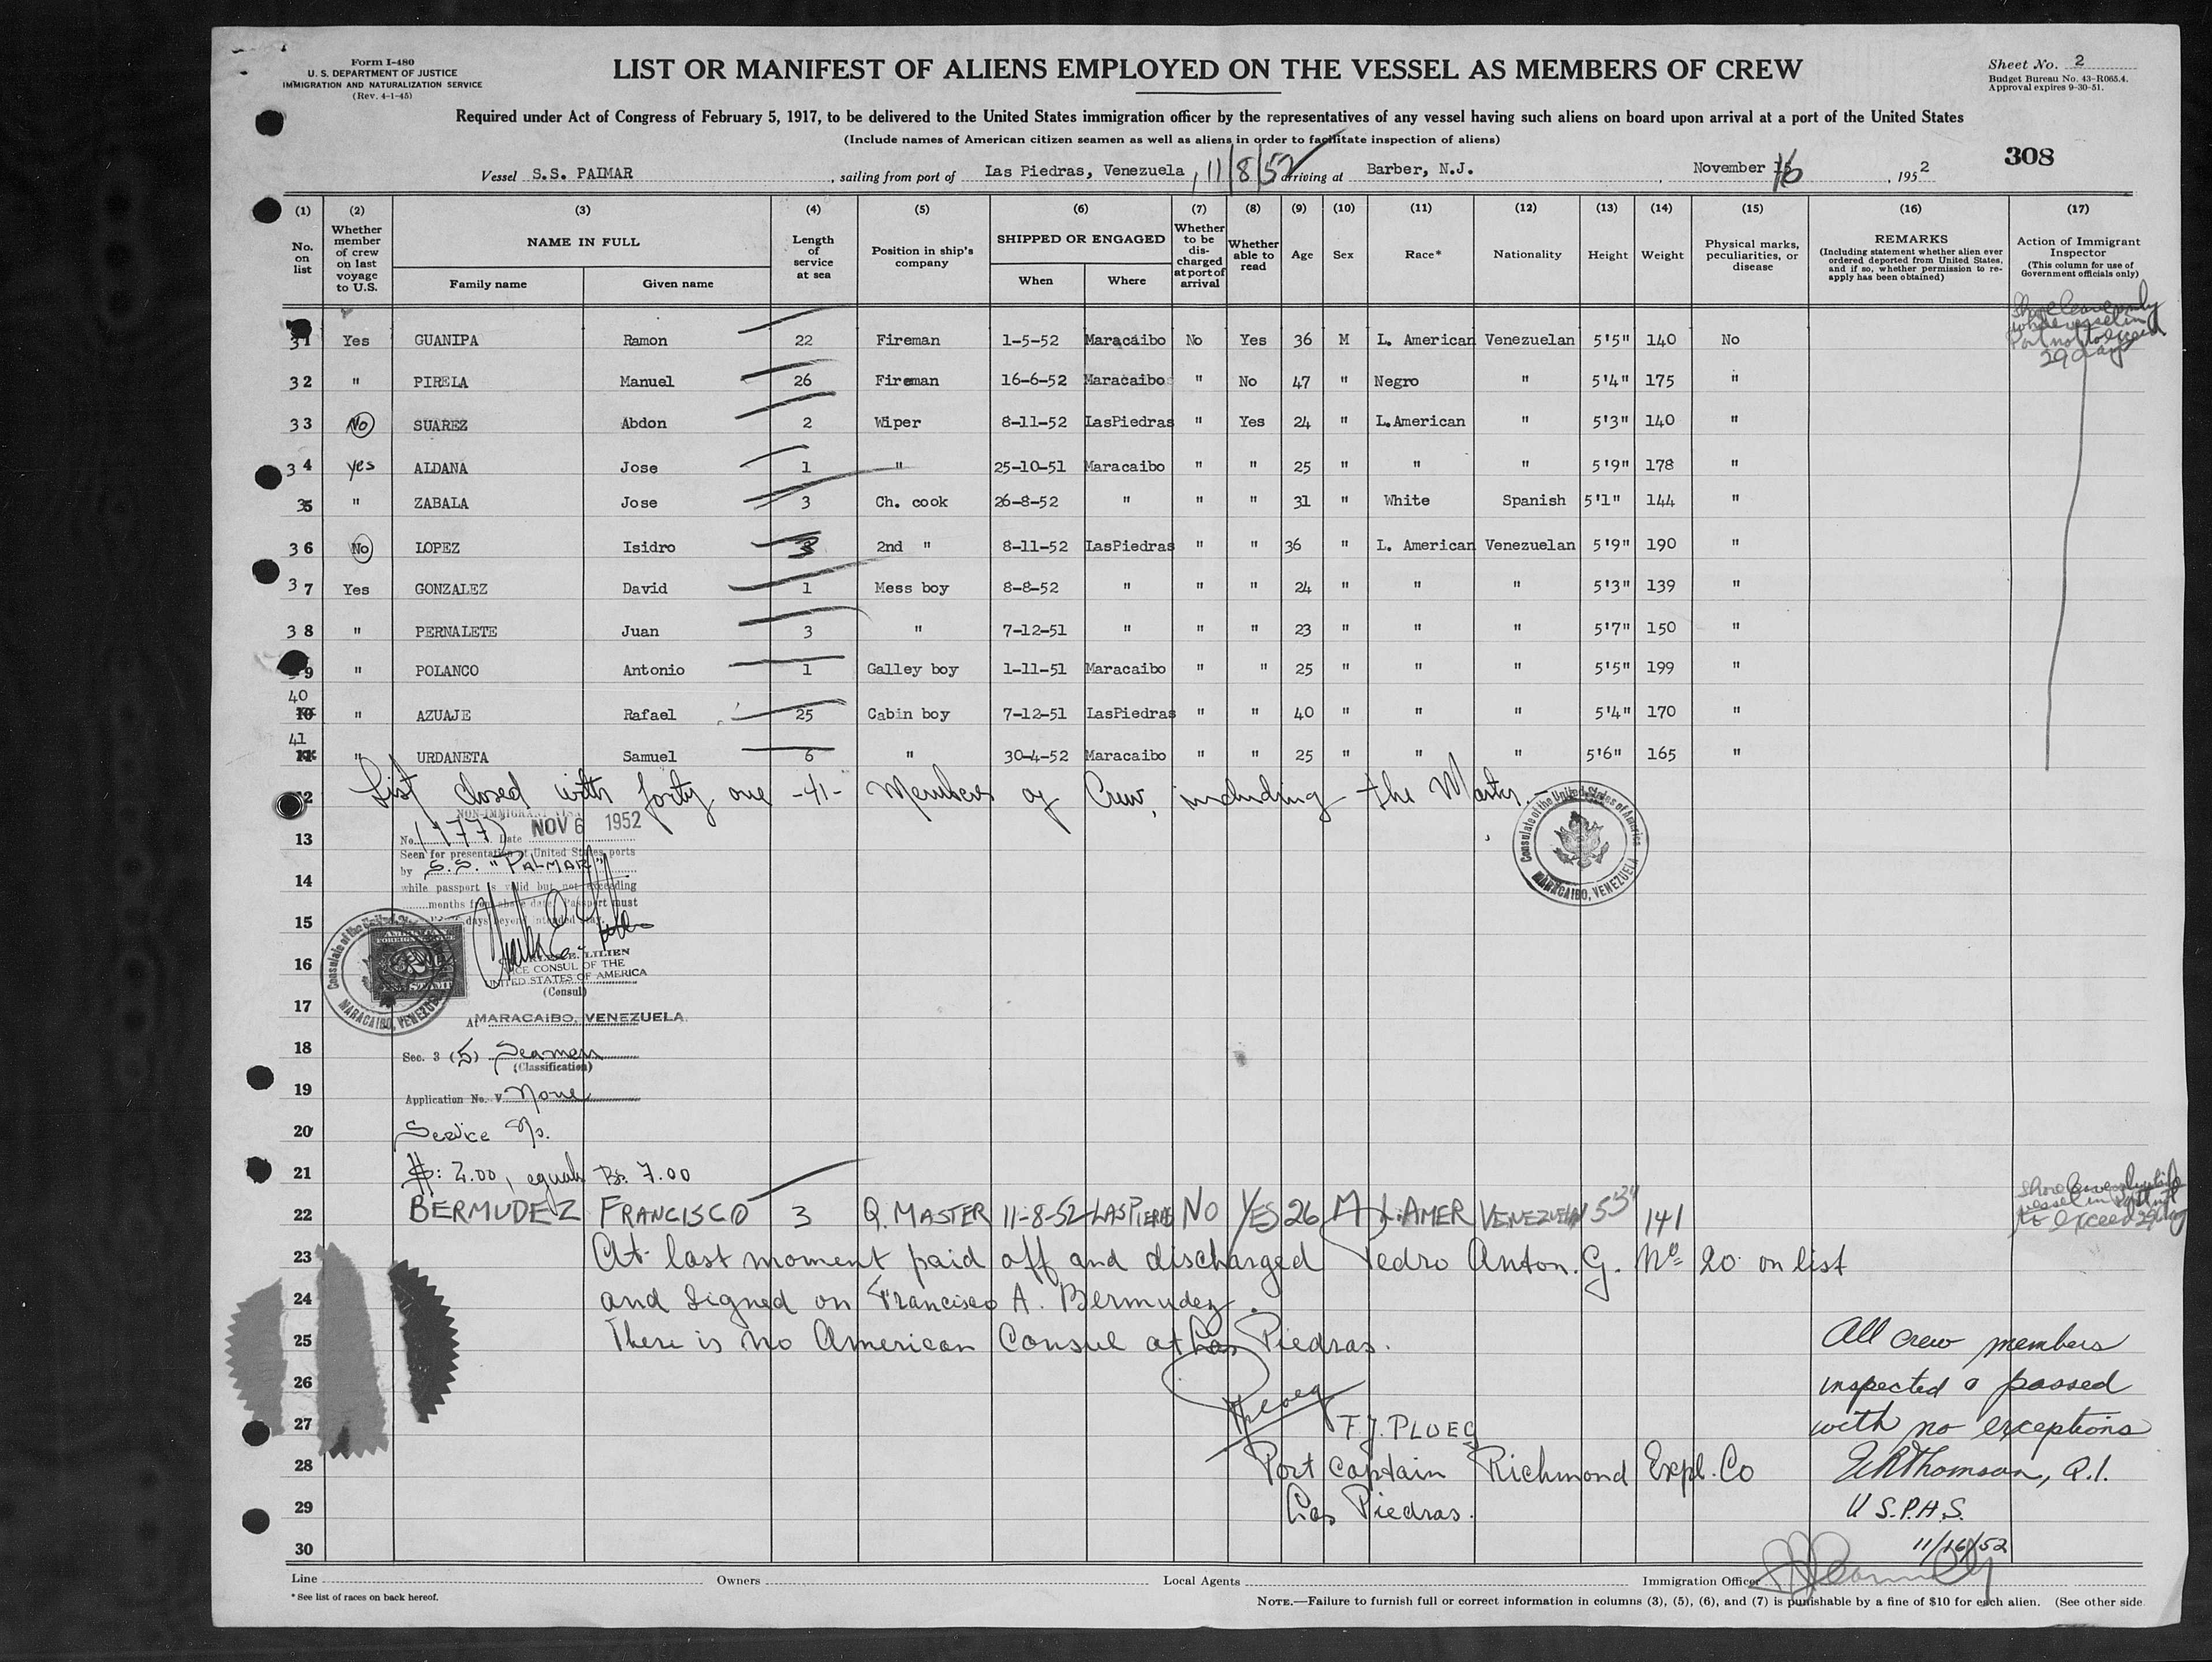 Form I-480
U. S. DEPARTMENT OF JUSTICE
IMMIGRATION AND NATURALIZATION SERVICE
(Rev. 4-1-45)
LIST OR MANIFEST OF ALIENS EMPLOYED ON THE VESSEL AS MEMBERS OF CREW
Sheet No. 2
Budget Bureau No. 43-R065.4.
Approval expires 9-30-51.
Required under Act of Congress of February 5, 1917, to be delivered to the United States immigration officer by the representatives of any vessel having such aliens on board upon arrival at a port of the United States
(Include names of American citizen seamen as well as aliens in order to facilitate inspection of aliens)
308
Vessel S.S. PALMAR, sailing from port of Las Piedras, Venezuela, 11/8/52 arriving at Barber, N.J. November 16, 1952
(1) (2) (3) (4) (5) (6) (7) (8) (9) (10) (11) (12) (13) (14) (15) (16) (17)
No. on list
Whether member of crew on last voyage to U.S.
NAME IN FULL
Family name
Given name
Length of service at sea
Position in ship's company
SHIPPED OR ENGAGED
When
Where
Whether to be discharged at port of arrival
Whether able to read
Age
Sex
Race*
Nationality
Height
Weight
Physical marks, peculiarities, or disease
REMARKS
(Including statement whether alien ever ordered deported from United States, and if so, whether permission to reapply has been obtained)
Action of Immigrant Inspector
(This column for use of Government officials only)
Shore leave only
while vessel in
Port not to exceed
29 days
31 Yes GUANIPA Ramon 22 Fireman 1-5-52 Maracaibo No Yes 36 M L. American Venezuelan 5'5" 140 No
32 " PIRELA Manuel 26 Fireman 16-6-52 Maracaibo " No 47 " Negro " 5'4" 175 "
33 No SUAREZ Abdon 2 Wiper 8-11-52 LasPiedras " Yes 24 " L.American " 5'3" 140 "
34 yes ALDANA Jose 1 " 25-10-51 Maracaibo " " 25 " " " 5'9" 178 "
35 " ZABALA Jose 3 Ch. cook 26-8-52 " " " 31 " White Spanish 5'1" 144 "
36 No LOPEZ Isidro 3 2nd " 8-11-52 LasPiedras " " 36 " L. American Venezuelan 5'9" 190 "
37 Yes GONZALEZ David 1 Mess boy 8-8-52 " " " 24 " " " 5'3" 139 "
38 " PERNALETE Juan 3 " 7-12-51 " " " 23 " " " 5'7" 150 "
39 " POLANCO Antonio 1 Galley boy 1-11-51 Maracaibo " " 25 " " " 5'5" 199 "
40
10 " AZUAJE Rafael 25 Cabin boy 7-12-51 LasPiedras " " 40 " " " 5'4" 170 "
41
11 " URDANETA Samuel 6 " 30-4-52 Maracaibo " " 25 " " " 5'6" 165 "
12 List closed with forty one -41- Members of Crew, including the Master.
NON-IMMIGRANT VISA
13 No. 1777 Date NOV 6 1952
Seen for presentation at United States ports
by S.S. "PALMAR"
14 while passport is valid but not exceeding
months from above date. Passport must
15 days beyond intended stay.
16 E. LILIEN
VICE CONSUL OF THE
UNITED STATES OF AMERICA
(Consul)
17 At MARACAIBO, VENEZUELA.
Consulate of the United States of America
MARACAIBO, VENEZUELA
AMERICAN
FOREIGN SERVICE
FEE STAMP
Consulate of the United States of America
MARACAIBO, VENEZUELA
18 Sec. 3 (5) Seamen
(Classification)
19 Application No. V None
20 Service No.
21 $: 2.00, equals Bs. 7.00
22 BERMUDEZ FRANCISCO 3 Q. MASTER 11-8-52 LAS PIEDRAS NO YES 26 M L. AMER VENEZUELAN 5'3" 141
Shore leave only while
vessel in Port not
to exceed 29 days
23 At last moment paid off and discharged Pedro Anton. G. Nº 20 on list
24 and signed on Francisco A. Bermudez.
25 There is no American Consul at Las Piedras.
26 Ploeg
27 F.J. PLOEG
28 Port Captain Richmond Expl. Co
29 Las Piedras.
30
All crew members
inspected & passed
with no exceptions
Thomson, Q.I.
U.S.P.H.S.
11/16/52
Line Owners Local Agents Immigration Officer
* See list of races on back hereof.
NOTE.—Failure to furnish full or correct information in columns (3), (5), (6), and (7) is punishable by a fine of $10 for each alien. (See other side